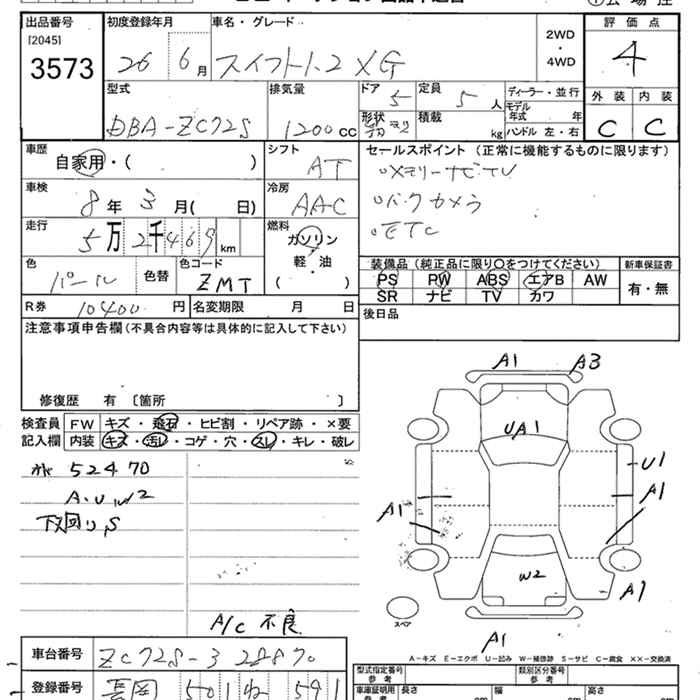 出品番号 初度登録年月 車名・グレード 2WD・4WD 評価点
[2045]
3573 26 6月 スイフト1.2 XG 4
型式 排気量 ドア 定員 ディーラー・並行 外装 内装
DBA-ZC72S 1200cc 5 5人 モデル年式 年 C C
形状 積載 kg ハンドル 左・右
車歴 シフト セールスポイント (正常に機能するものに限ります)
自家用・( ) AT ○メモリーナビTV
車検 冷房 ○バックカメラ
8年3月( 日) AAC ○ETC
走行 燃料
5万2千469km ガソリン
軽・油
( )
色 色替 色コード
パール ZMT
装備品 (純正品に限り○をつけてください) 新車保証書
PS PW ABS エアB AW 有・無
SR ナビ TV カワ
R券 10400円 名変期限 月 日 後日品
注意事項申告欄(不具合内容等は具体的に記入して下さい)
修復歴 有 〔箇所 〕
検査員 FW キズ・飛石・ヒビ割・リペア跡・×要
記入欄 内装 キズ・汚レ・コゲ・穴・スレ・キレ・破レ
52470
A.U W2
下回りS
A/C 不良
A1 A3
UA1
U1
A1
A1
W2
A1
スペア
A1
A-キズ E-エクボ U-凹み W-補修跡 S-サビ C-腐食 ××-交換済
車台番号 ZC72S-3
型式指定番号 参考 類別区分番号 参考
登録番号 長岡 501 ね 591
車庫証明用 参考 長さ cm 幅 cm 高さ cm